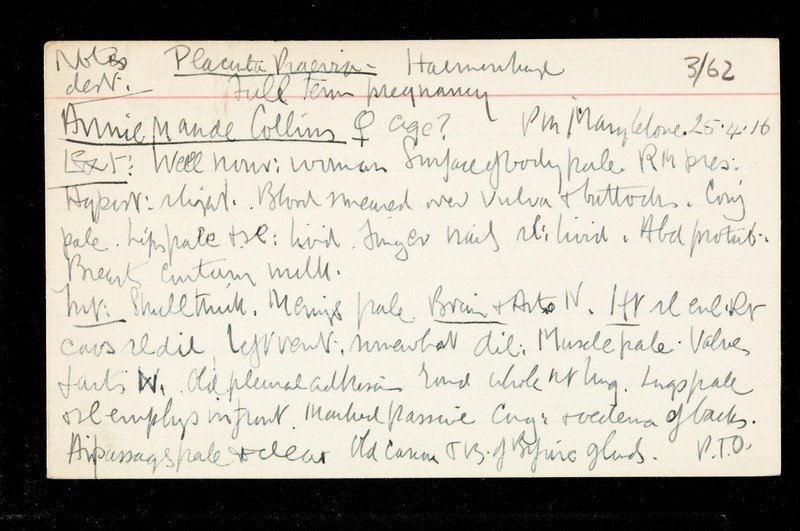 Notes Placenta Praevia - Haemorrhage 3/62
destr. Full Term pregnancy
Annie Maude Collins ♀ age? PM Marylebone. 25.4.16
Ext: Well nour: woman Surface of body pale. RM pres:
Hypost: slight. Blood smeared over vulva & buttocks. Conj
pale. Lips pale & sl: livid. Finger nails sl: livid. Abd protub:.
Breasts contain milk.
Int: Skull thick. Mening pale. Brain & Arts N. Ht sl enl. Rt
cavs sl dil, left vent. somewhat dil: Muscle pale. Valves
& arts N. Old pleural adhesions round whole rt lung. Lungs pale
& sl emphys in front. Marked passive cong: & oedema of backs.
Air passages pale & clear Old caseous TB. of Bifurc glands. P.T.O.